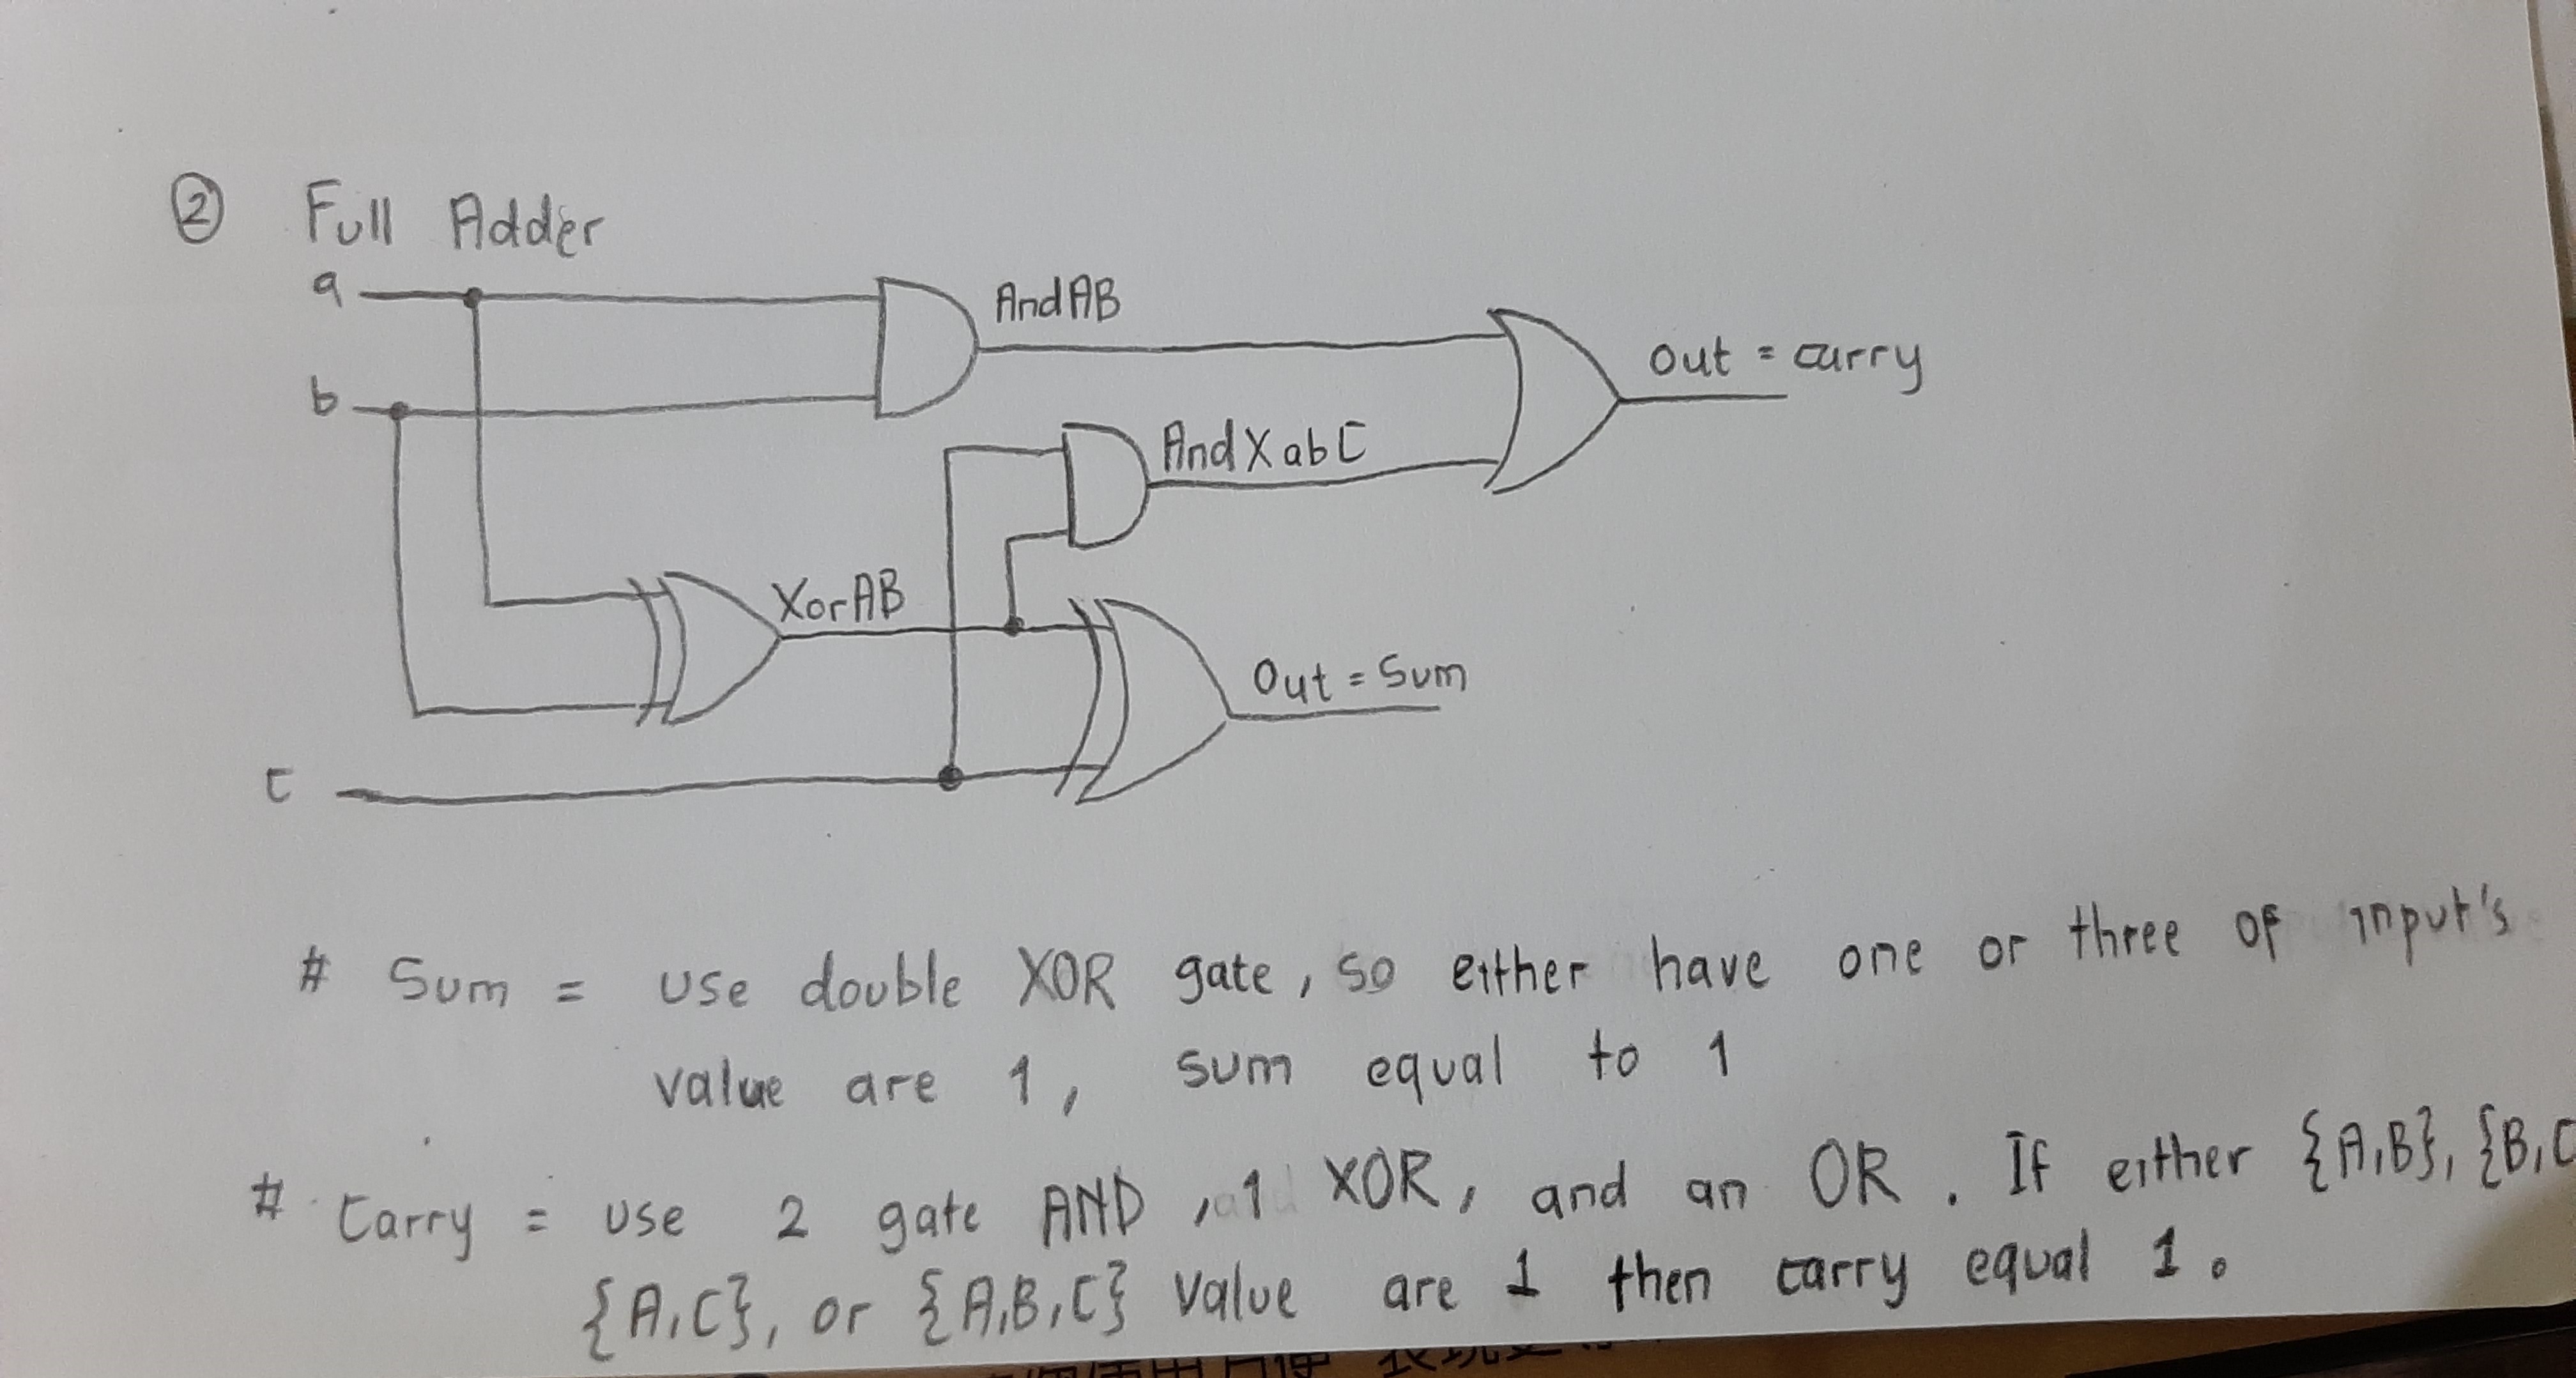 ② Full Adder
a
AndAB
out = carry
b
AndXabC
XorAB
Out = Sum
C
# Sum = use double XOR gate, so either have one or three of input's
value are 1, sum equal to 1
# Carry = use 2 gate AND, 1 XOR, and an OR. If either {A,B}, {B,C
{A,C}, or {A,B,C} value are 1 then carry equal 1.